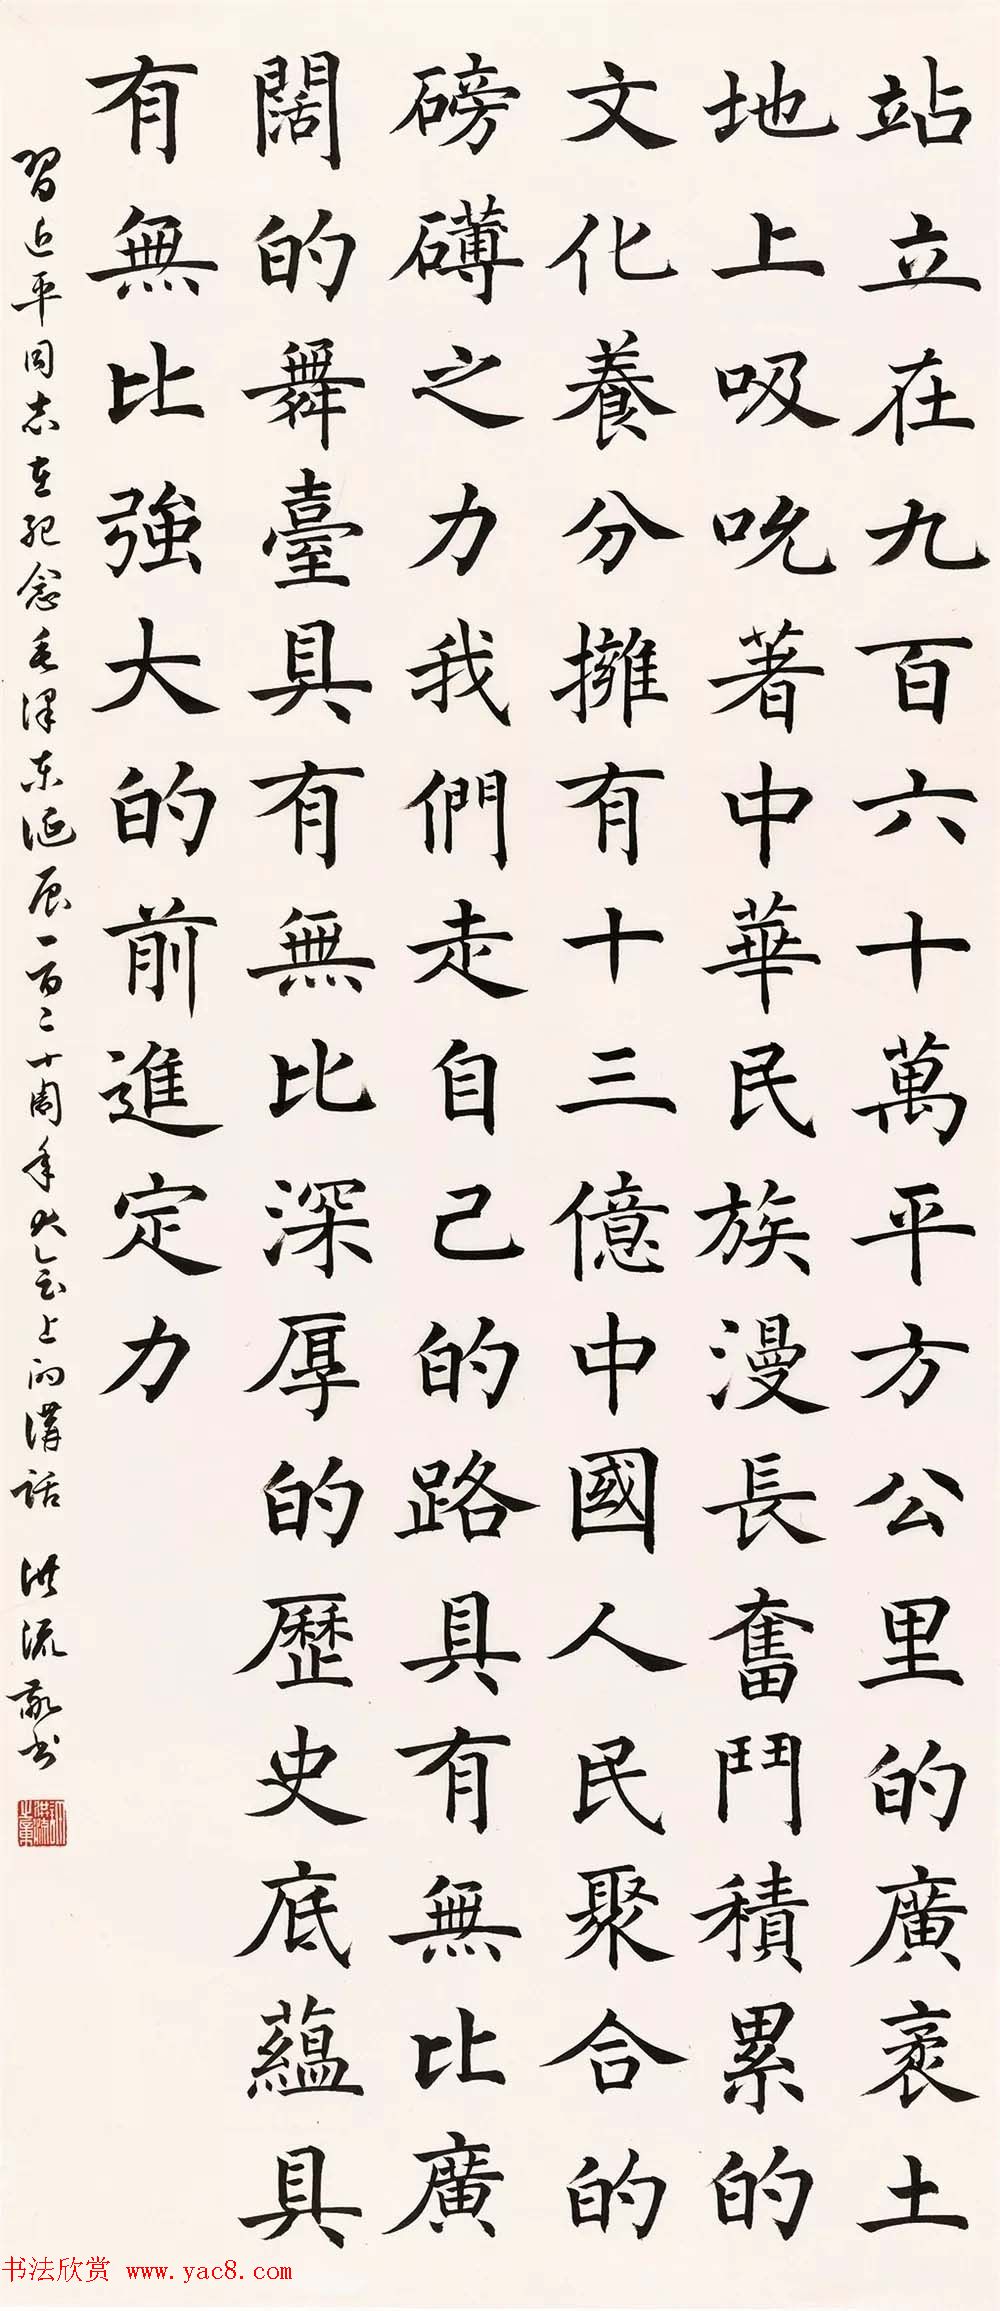 站立在九百六十萬平方公里的廣袤土
地上吸吮著中華民族漫長奮鬥積累的
文化養分擁有十三億中國人民聚合的
磅礴之力我們走自己的路具有無比廣
闊的舞臺具有無比深厚的歷史底蘊具
有無比強大的前進定力
習近平同志在紀念毛澤东诞辰一百二十周年大会上的講話 洪流敬书
书法欣赏 www.yac8.com